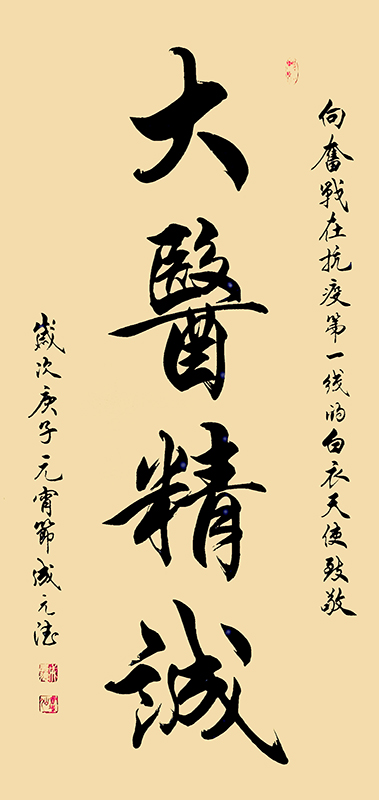 向奮戰在抗疫第一线的白衣天使致敬
大醫精誠
歲次庚子元宵節成元